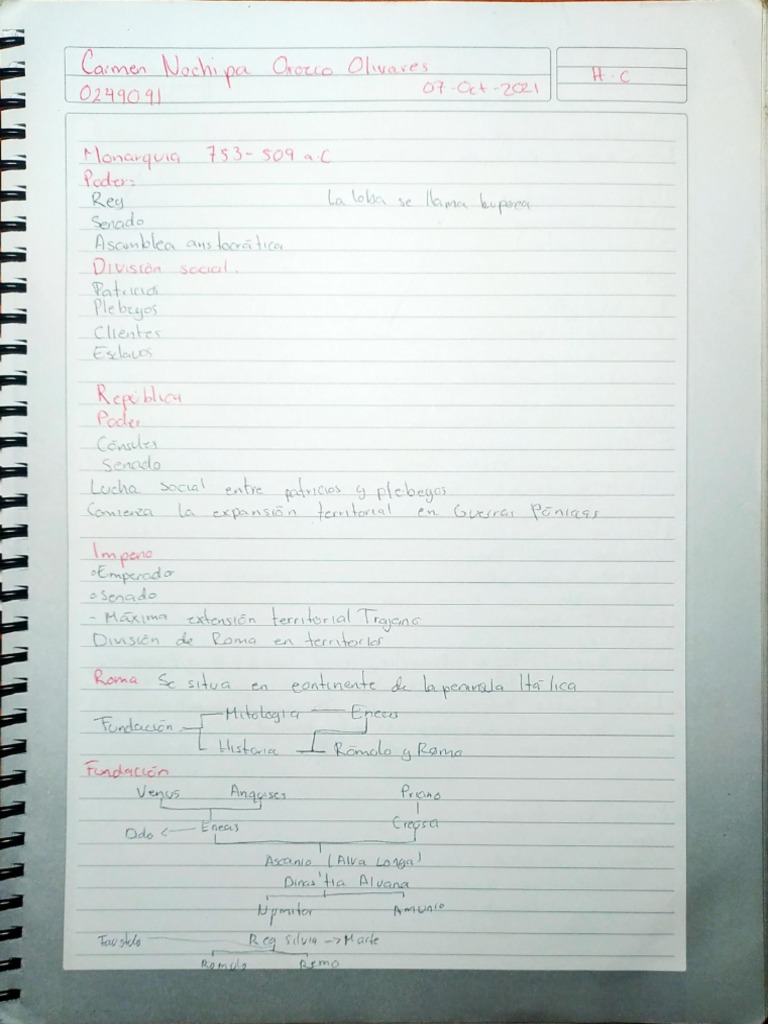 Carmen Nochipa Orozco Olivares
0249091 07-Oct-2021
H.C
Monarquia 753-509 a.C
Poder:
Rey La loba se llama
Senado
Asamblea aristocrática
División social.
Patricios
Plebeyos
Clientes
Esclavos
República
Poder
Cónsules
Senado
Lucha social entre patricios y plebeyos
Comienza la expansión territorial en Guerras Púnicas
Imperio
Emperador
Senado
- Máxima extensión territorial Trajano
División de Roma en territorios
Roma Se situa en continente de la peninsula Itálica
Fundación Mitologia Eneas
Historia Rómulo y Remo
Fundación
Venus Anquises Priamo
Dido Eneas Creusa
Ascanio (Alva Longa)
Dinastía Alvana
Numitor Amulio
Faustulo Rea Silvia → Marte
Romulo Remo